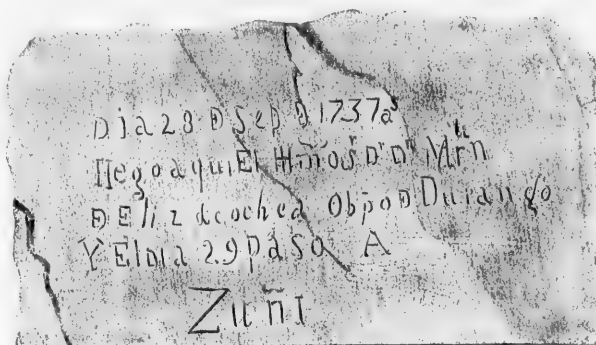 Dia 28 D Sep D 1737 as
llego aqui El Illmo Sr Dr Dn Mrn
D Elizdcochea Obpo D Durango
Y El Dia 29 paso A
Zuñi